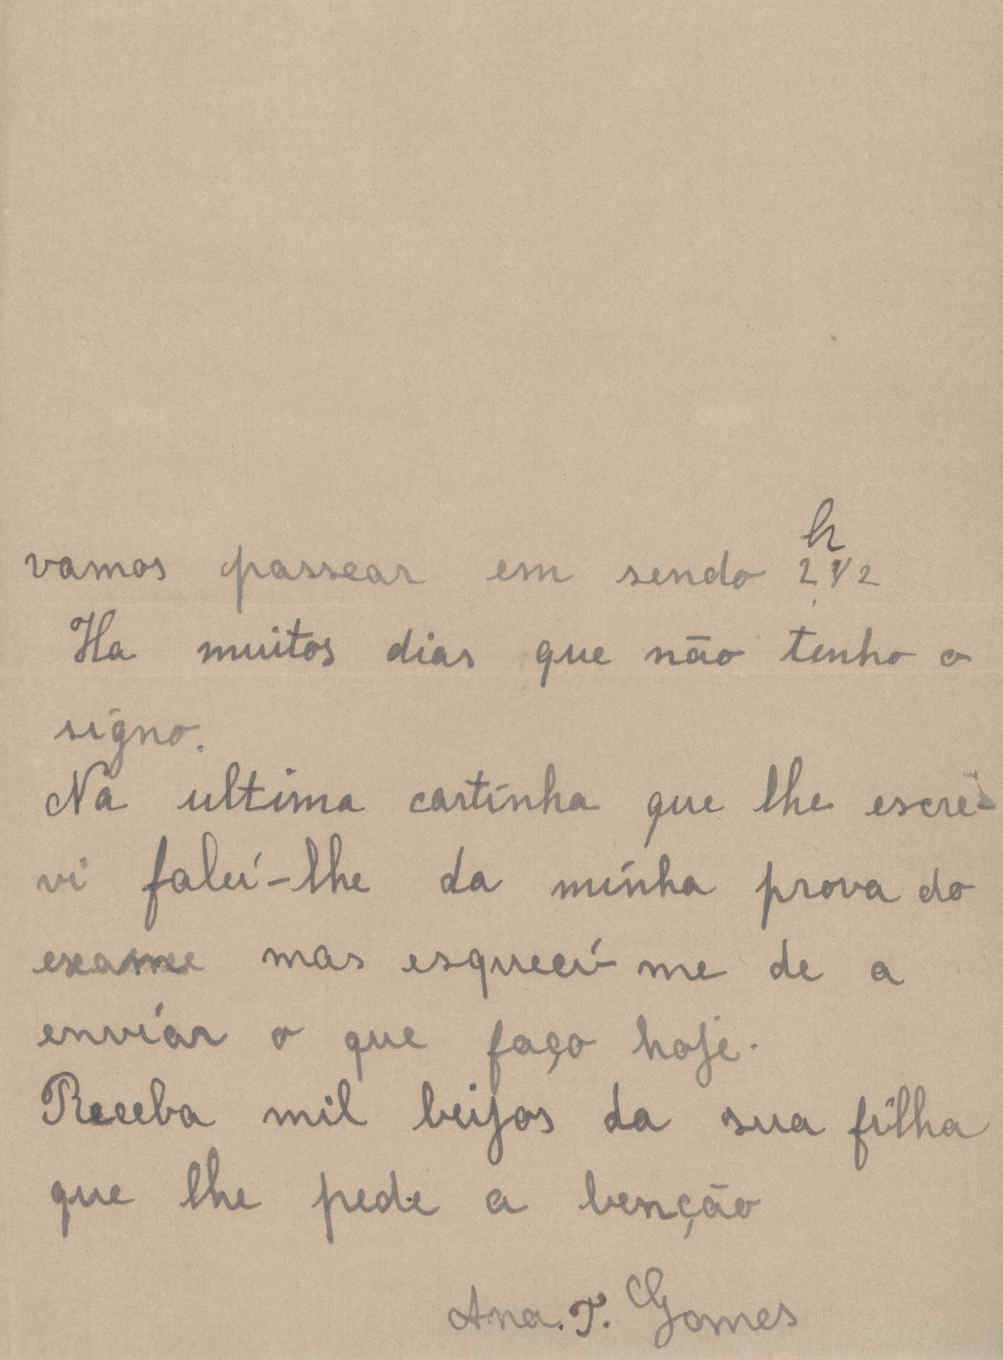 vamos passear em sendo 2 h 1/2
Ha muitos dias que não tenho o
signo.
Na ultima cartinha que lhe escre-
vi falei-lhe da minha prova do
exame mas esqueci-me de a
enviar o que faço hoje.
Receba mil beijos da sua filha
que lhe pede a benção
Ana. T. Gomes